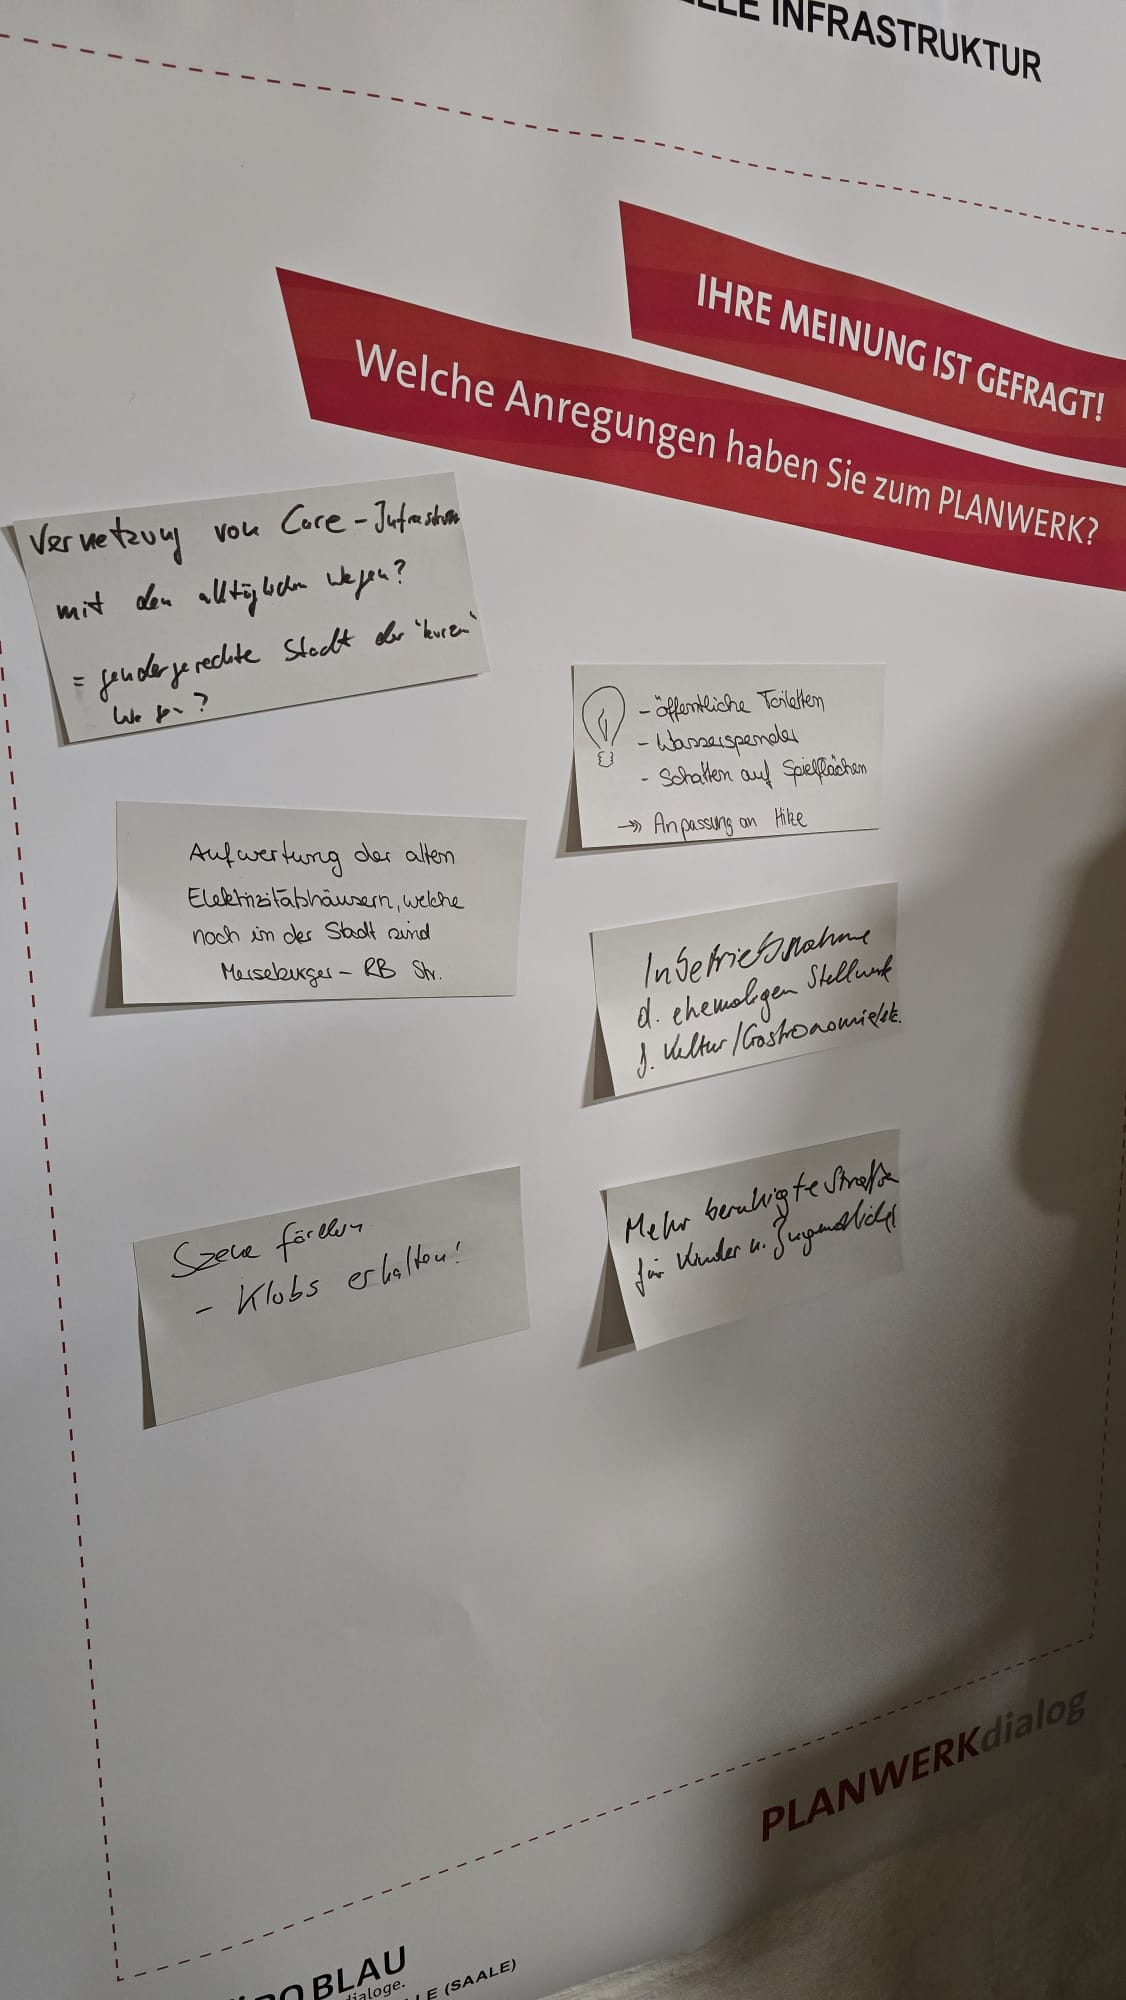 ELLE INFRASTRUKTUR
IHRE MEINUNG IST GEFRAGT!
Welche Anregungen haben Sie zum PLANWERK?
Vernetzung von Care-Infrastru
mit den alltäglichen Wegen?
= gendergerechte Stadt der "kurzen"
Wege?
- öffentliche Toiletten
- Wasserspender
- Schatten auf Spielflächen
->> Anpassung an Hitze
Aufwertung der alten
Elektrizitätshäusern, welche
noch in der Stadt sind
Merseburger- RB Str.
Inbetriebsnahme
d. ehemaligen Stellwerk
f. Kultur/Gastronomie/etc.
Szene fördern
- Klubs erhalten!
Mehr beruhigte Straße
für Kinder u. Jugendliche
PLANWERKdialog
RO BLAU
dialoge.
LE (SAALE)